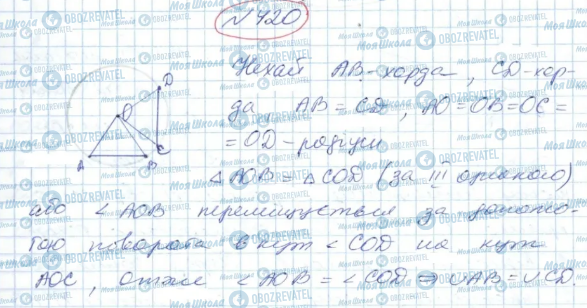 №420
Нехай AB-хорда, CD-хор-
да, AB=CD, AO=OB=OC=
=OD-радіуси
△AOB=△COD (за III ознакою)
або ∠AOB переміщується за допомо-
гою поворота в пут ∠COD на кут
AOC, отже ∠AOB=∠COD ⇒ ∪AB=∪CD.
O
D
A
B
C
Моя Школа
OBOZREVATEL